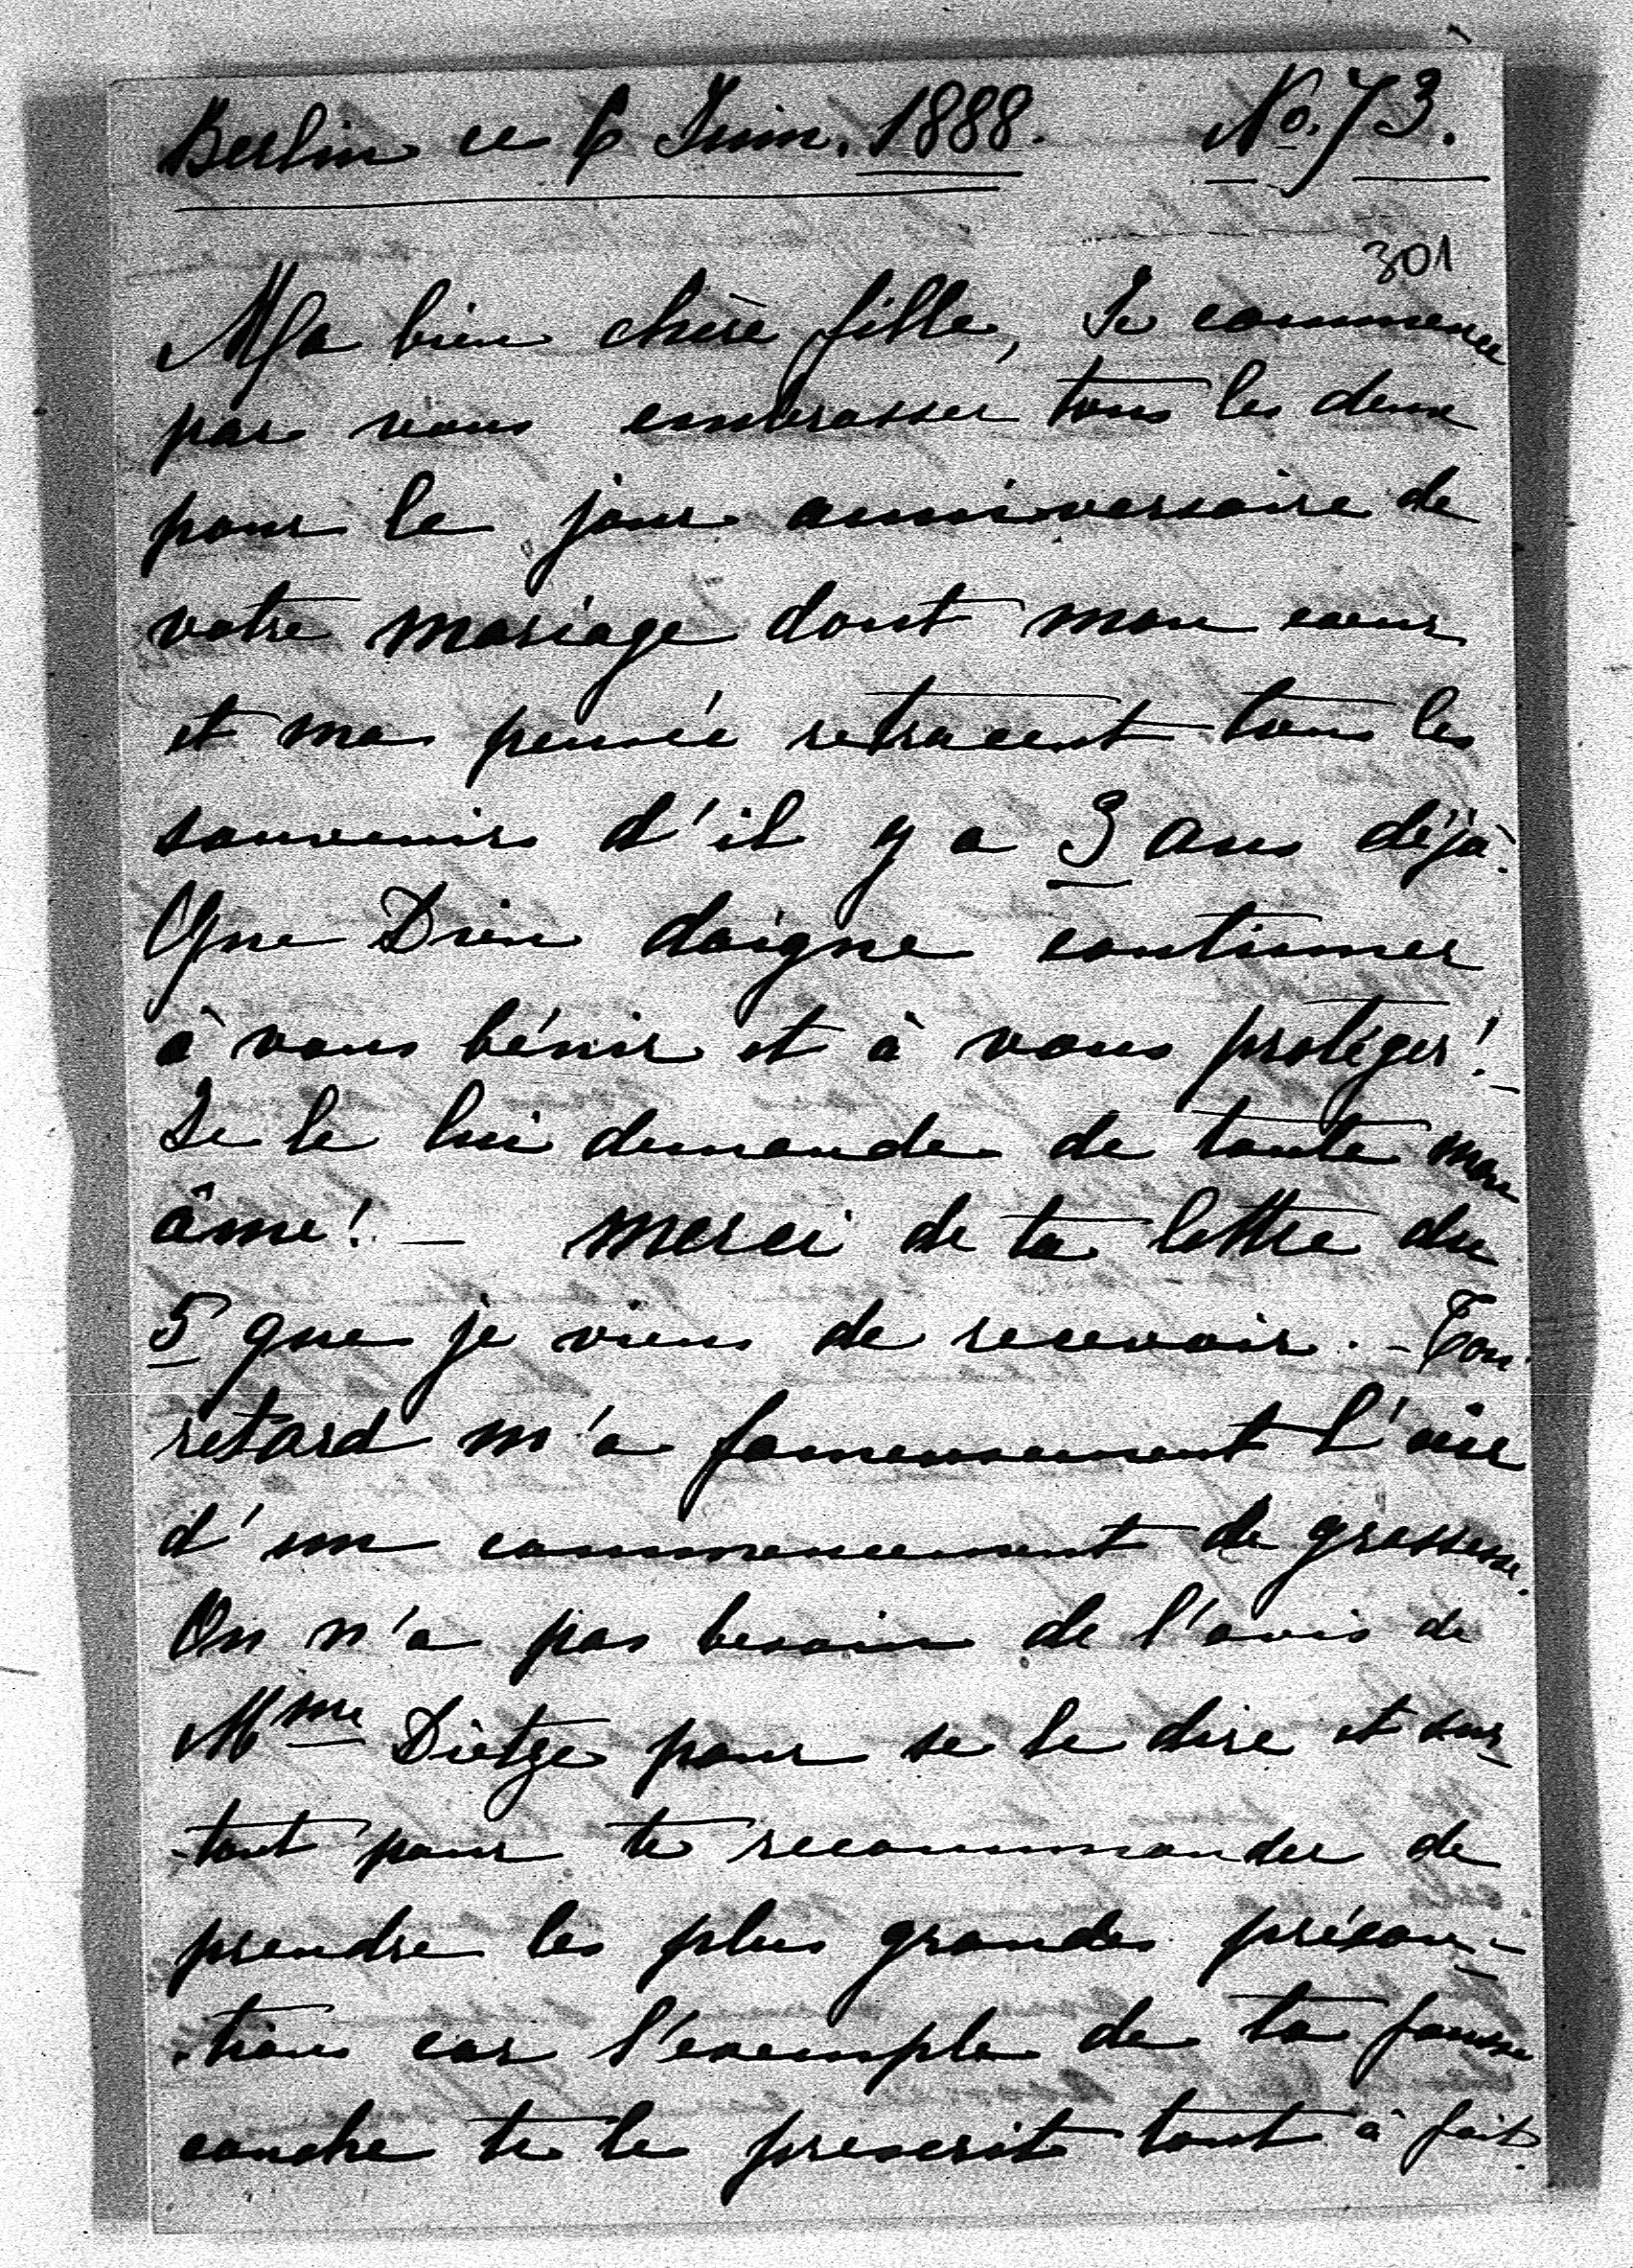 Berlin ce 6 Juin. 1888. No. 73.
301
Ma bien chère fille, Je commence
par vous embrasser tous les deux
pour le jour anniversaire de
votre mariage dont mon cœur
et ma pensée retracent tous les
souvenirs d'il y a 3 ans déjà.
Que Dieu daigne continuer
à vous bénir et à vous protéger! -
Je le lui demande de toute mon
âme! — Merci de ta lettre du
5 que je viens de recevoir. - Ton
retard m'a fameusement l'air
d'un commencement de grossesse.
On n'a pas besoin de l'avis de
Mme Dietze pour se le dire et sur-
-tout pour te recommander de
prendre les plus grandes précau-
-tions car l'exemple de ta fausse
couche te le prescrit tout à fait.